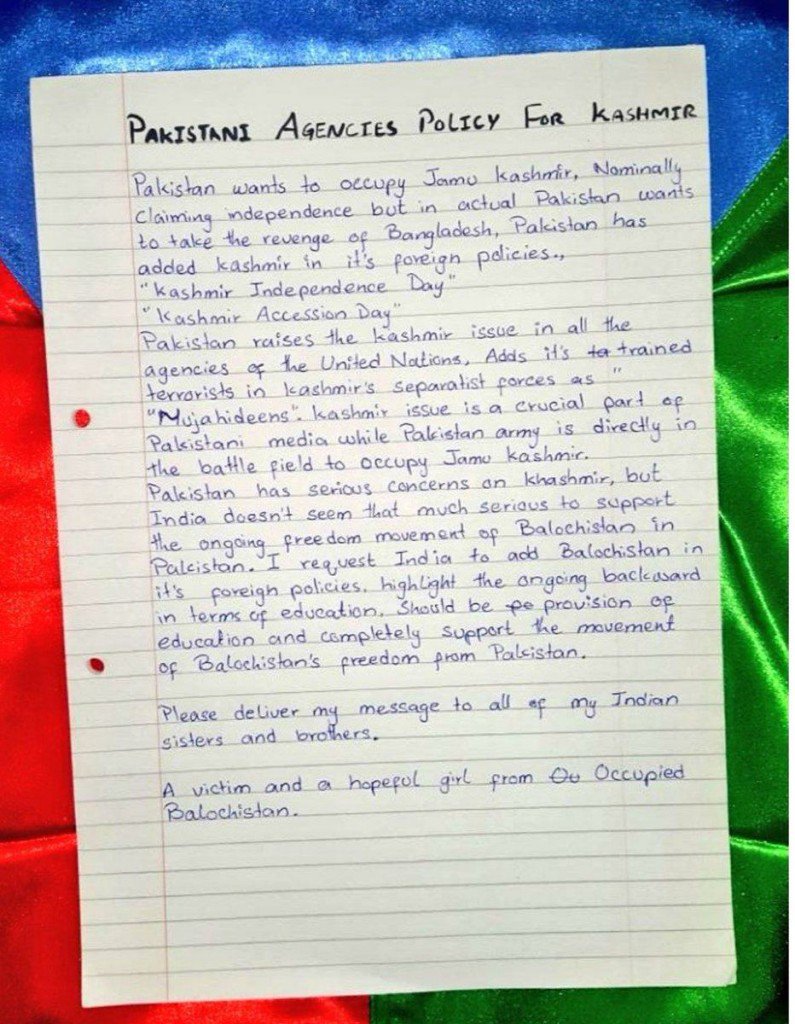 PAKISTANI AGENCIES POLICY FOR KASHMIR
Pakistan wants to occupy Jamu kashmir, Nominally
claiming independence but in actual Pakistan wants
to take the revenge of Bangladesh, Pakistan has
added kashmir in it's foreign policies.,
"Kashmir Independence Day"
"Kashmir Accession Day"
Pakistan raises the kashmir issue in all the
agencies of the United Nations, Adds it's ta trained
terrorists in kashmir's separatist forces as "
"Mujahideens". kashmir issue is a crucial part of
Pakistani media while Pakistan army is directly in
the battle field to occupy Jamu kashmir.
Pakistan has serious concerns on khashmir, but
India doesn't seem that much serious to support
the ongoing freedom movement of Balochistan in
Pakistan. I request India to add Balochistan in
it's foreign policies. highlight the ongoing backward
in terms of education. Should be pe provision of
education and completely support the movement
of Balochistan's freedom from Pakistan.
Please deliver my message to all of my Indian
sisters and brothers.
A victim and a hopeful girl from Ou Occupied
Balochistan.